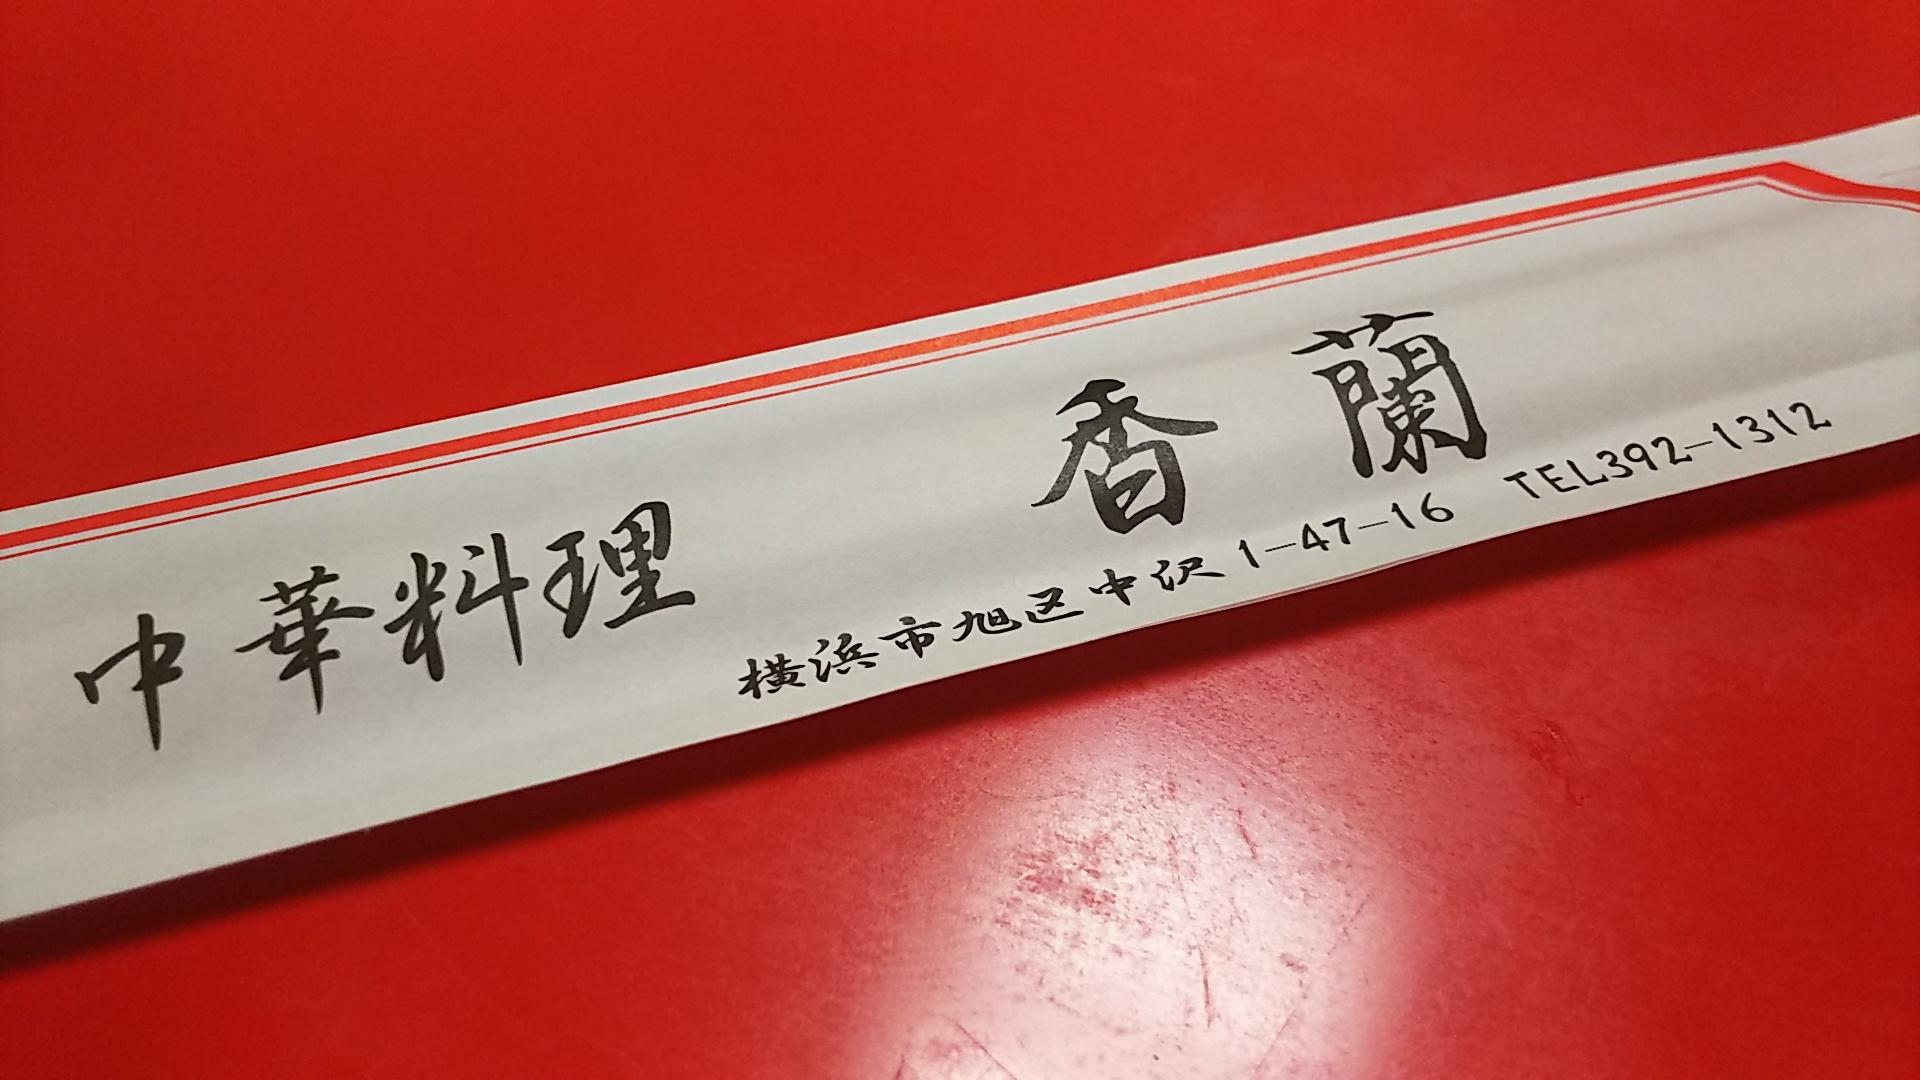 中華料理 香蘭
横浜市旭区中沢1-47-16 TEL392-1312